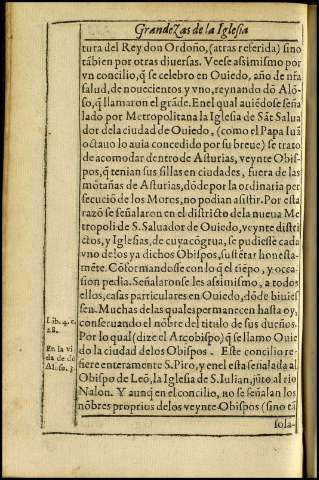 Grandezas de la Iglesia
tura del Rey don Ordoño, (atras referida) sino
tãbien por otras diuersas. Veese assimismo por
vn concilio, q̃ se celebro en Ouiedo, año de nr̃a
salud, de nouecientos y vno, reynando dõ Alõ-
so, q̃ llamaron el grãde. En el qual auiẽdose seña
lado por Metropolitana la Iglesia de Sãt Salua
dor de la ciudad de Ouiedo, (como el Papa Iuã
octauo lo auia concedido por su breue) se trato
de acomodar dentro de Asturias, veynte Obis-
pos, q̃ tenian sus sillas en ciudades, fuera de las
mõtañas de Asturias, dõde por la ordinaria per
secuciõ de los Moros, no podian assistir. Por esta
razõ se señalaron en el districto de la nueua Me
tropoli de S. Saluador de Ouiedo, veynte distri
ctos, y Iglesias, de cuya cõgrua, se pudiesse cada
vno de los ya dichos Obispos, sustẽtar honesta-
mẽte. Cõformandosse con lo q̃ el tiẽpo, y oca-
sion pedia. Señalaronse les assimismo, a todos
ellos, casas particulares en Ouiedo, dõde biuies
sen. Muchas de las quales permanecen hasta oy,
conseruando el nõbre del titulo de sus dueños.
Por lo qual (dize el Arçobispo) q̃ se llamo Ouie
do la ciudad de los Obispos. Este concilio re-
fiere enteramente S. Piro, y en el esta señalada al
Obispo de Leõ, la Iglesia de S. Iulian, jũto al rio
Nalon. Y aunq̃ en el concilio, no se señalan los
nõbres proprius de los veynte Obispos (sino tã
sola-
Lib. 4. c.
28.
En la vi
da de dõ
Alõso. 3.